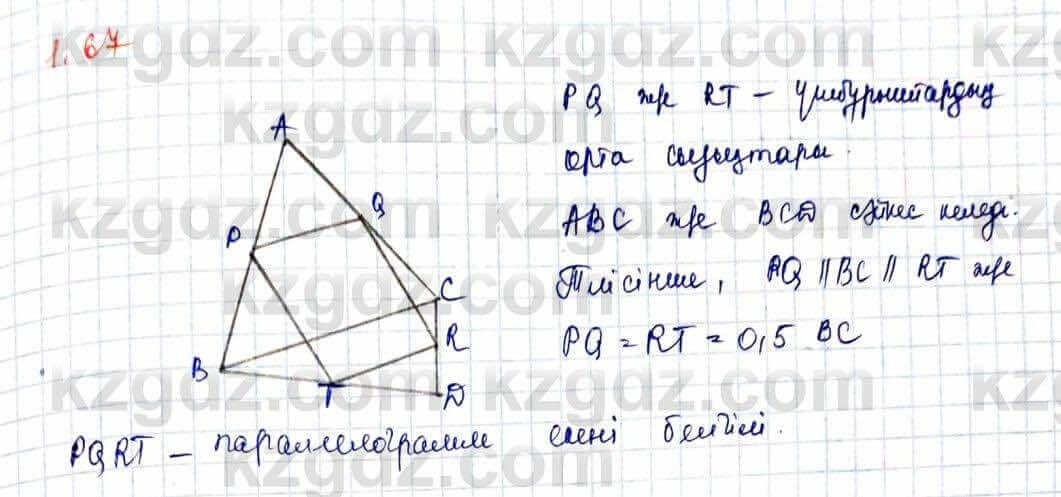 1.67
PQ және RT – үшбұрыштардың
орта сызықтары.
ABC және BCD сәйкес келеді.
Тиісінше, PQ || BC || RT және
PQ = RT = 0,5 BC
A
Q
P
C
R
B
T
D
PQRT – параллелограмм екені белгілі.
kzgdz.com